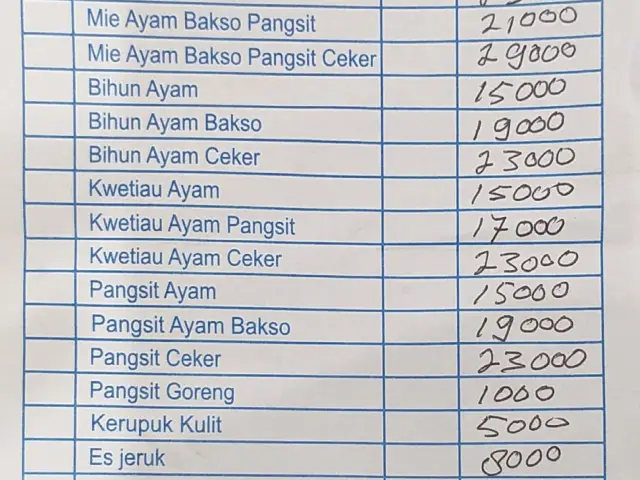 Mie Ayam Bakso Pangsit 21000
Mie Ayam Bakso Pangsit Ceker 29000
Bihun Ayam 15000
Bihun Ayam Bakso 19000
Bihun Ayam Ceker 23000
Kwetiau Ayam 15000
Kwetiau Ayam Pangsit 17000
Kwetiau Ayam Ceker 23000
Pangsit Ayam 15000
Pangsit Ayam Bakso 19000
Pangsit Ceker 23000
Pangsit Goreng 1000
Kerupuk Kulit 5000
Es jeruk 8000